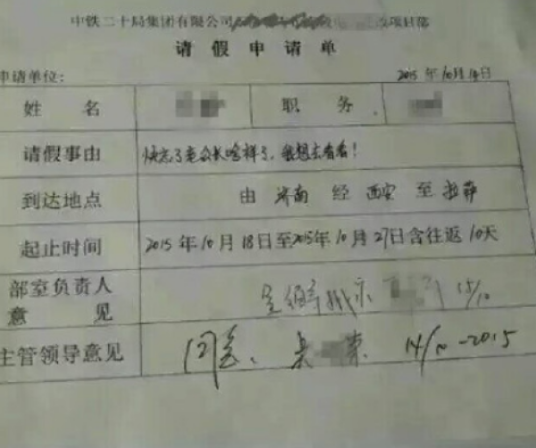 中铁二十局集团有限公司 项目部
请假申请单
申请单位: 2015年10月14日
姓名 职务
请假事由 快忘了老公长啥样了,我想去看看!
到达地点 由 济南 经 西安 至 拉萨
起止时间 2015年10月18日至2015年10月27日含往返10天
部室负责人
意见 15/10
主管领导意见 同意. 14/10-2015